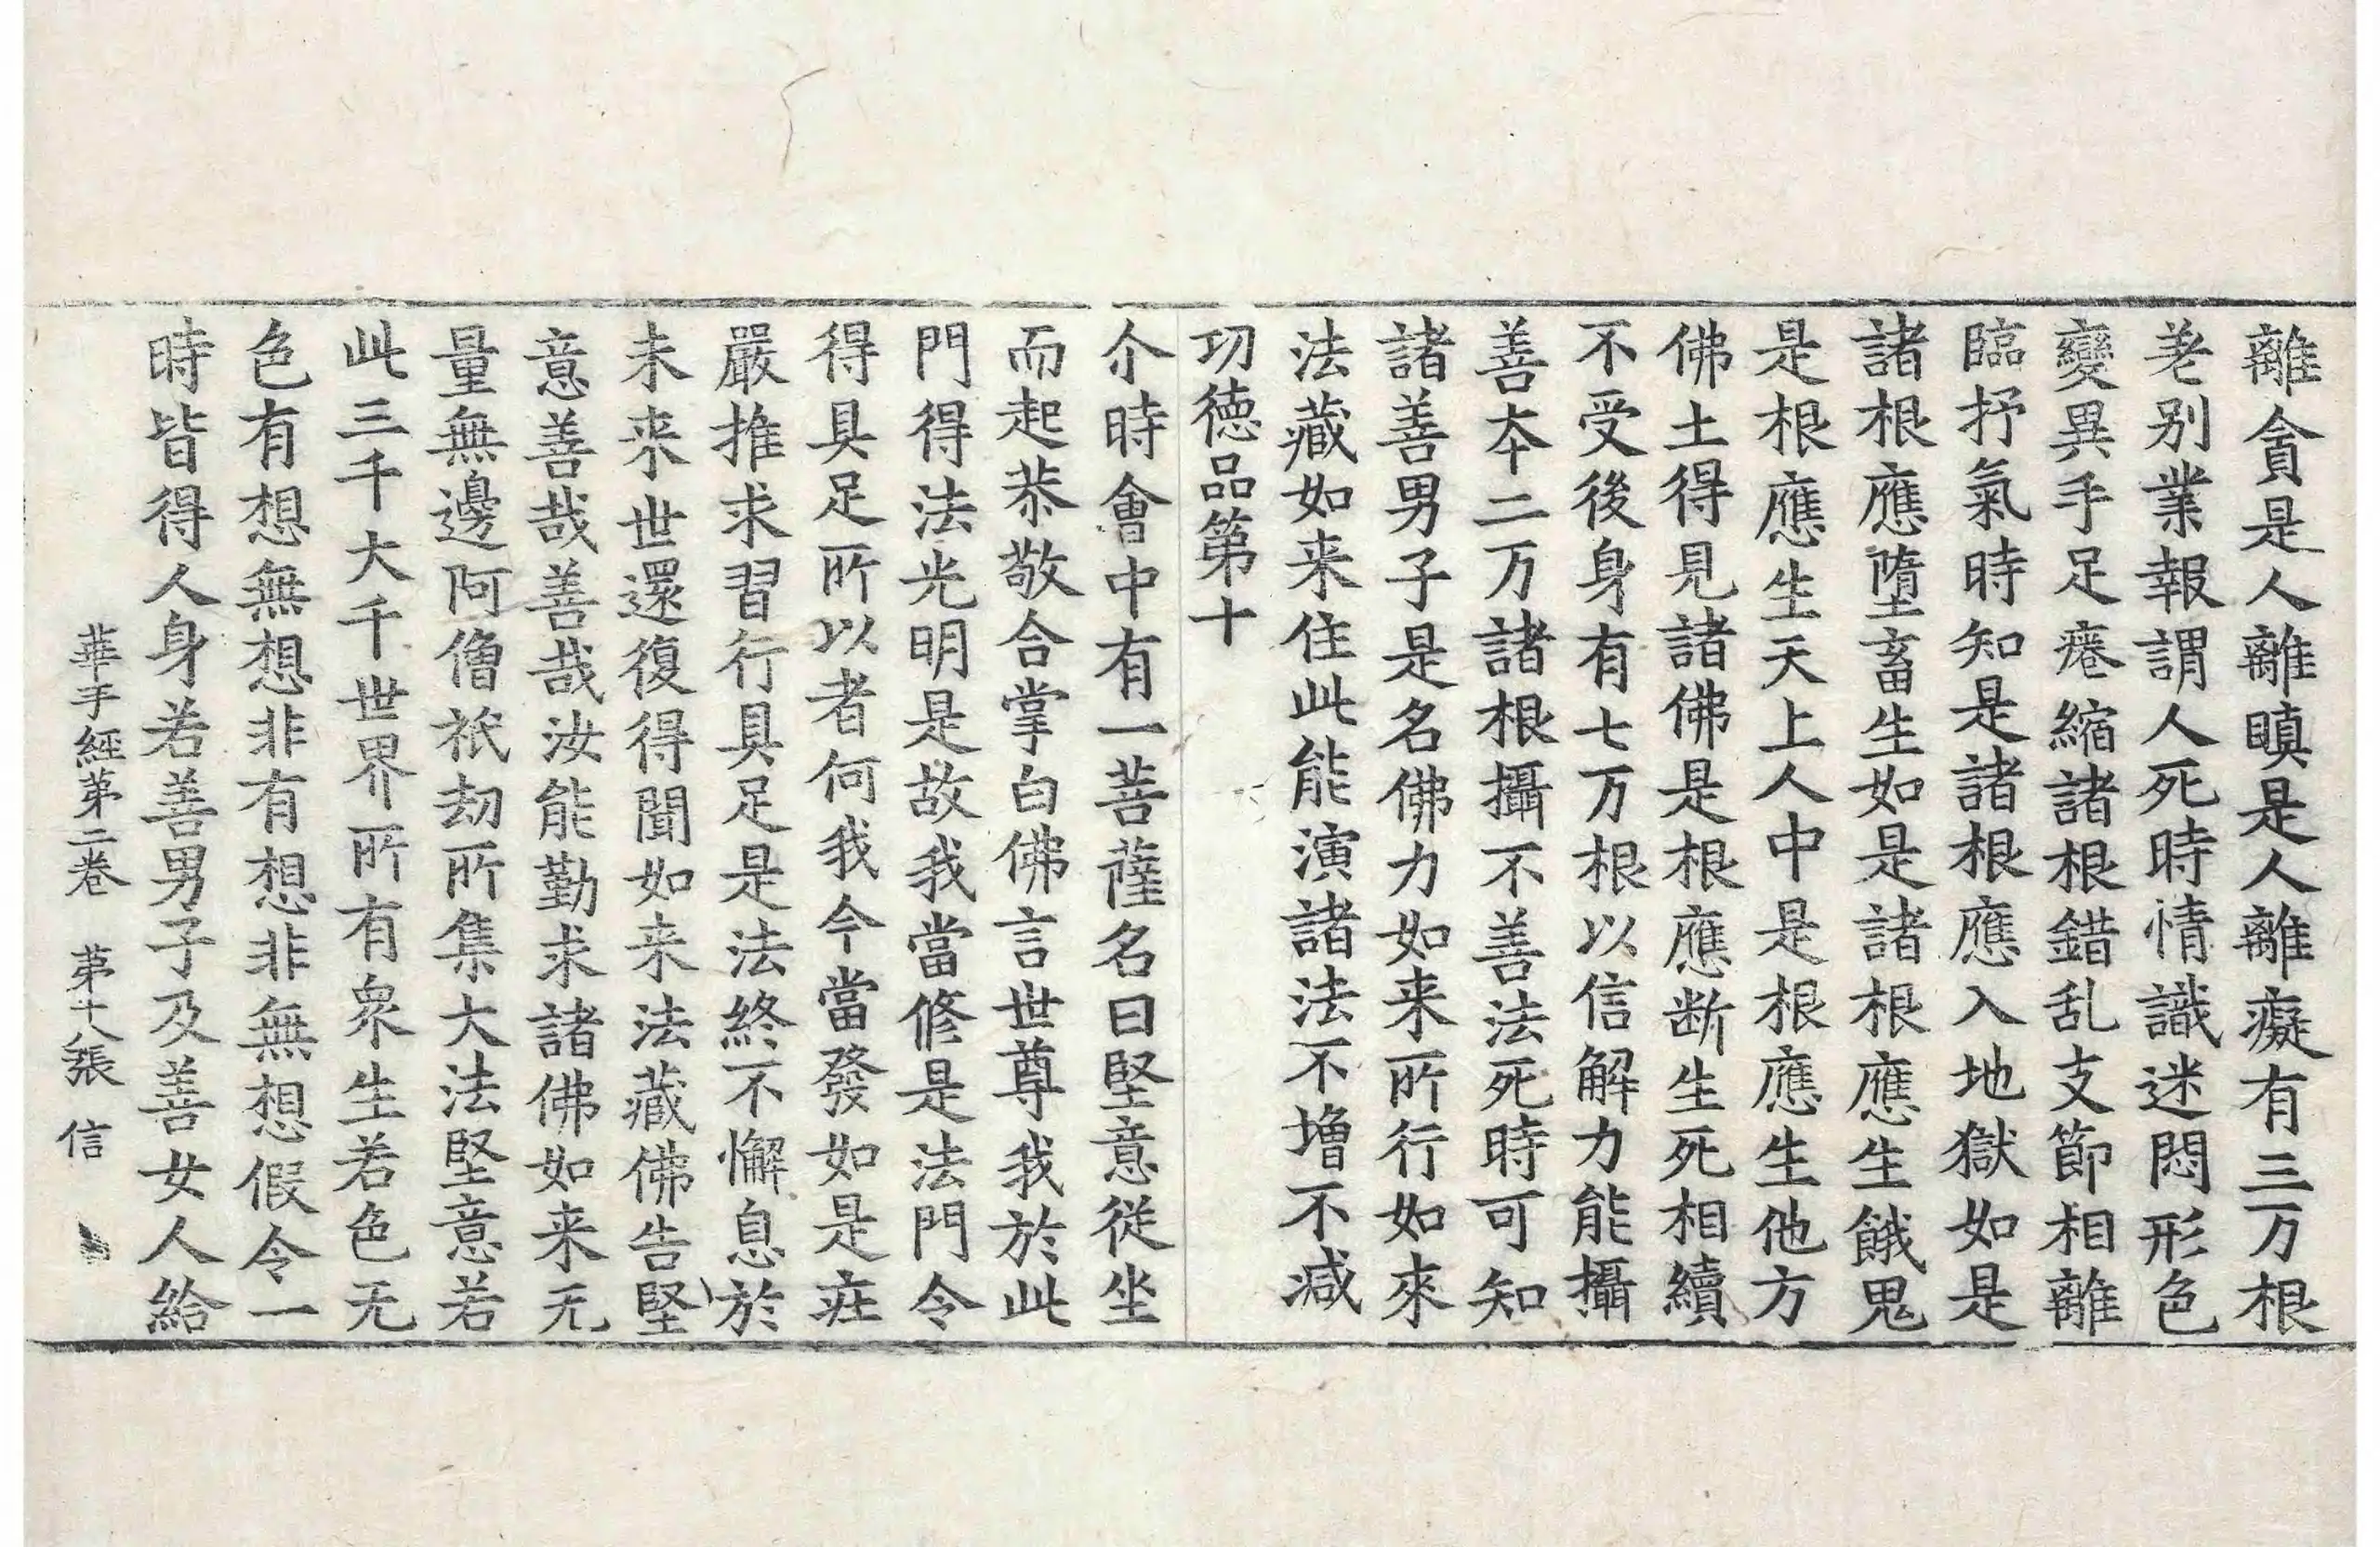 離貪是人離瞋是人離癡有三万根
差别業報謂人死時情識迷悶形色
變異手足痿縮諸根錯乱支節相離
臨抒氣時知是諸根應入地獄如是
諸根應墮畜生如是諸根應生餓鬼
是根應生天上人中是根應生他方
佛土得見諸佛是根應断生死相續
不受後身有七万根以信解力能攝
善夲二万諸根攝不善法死時可知
諸善男子是名佛力如来所行如來
法藏如来住此能演諸法不増不减
功德品第十
尒時會中有一菩薩名曰堅意從坐
而起恭敬合掌白佛言世尊我於此
門得法光明是故我當修是法門令
得具足所以者何我今當發如是莊
嚴推求習行具足是法終不懈息於
未来世還復得聞如来法藏佛告堅
意善哉善哉汝能勤求諸佛如来无
量無邊阿僧祇劫所集大法堅意若
此三千大千世界所有衆生若色无
色有想無想非有想非無想假令一
時皆得人身若善男子及善女人給
華手經第二卷 第十八張 信